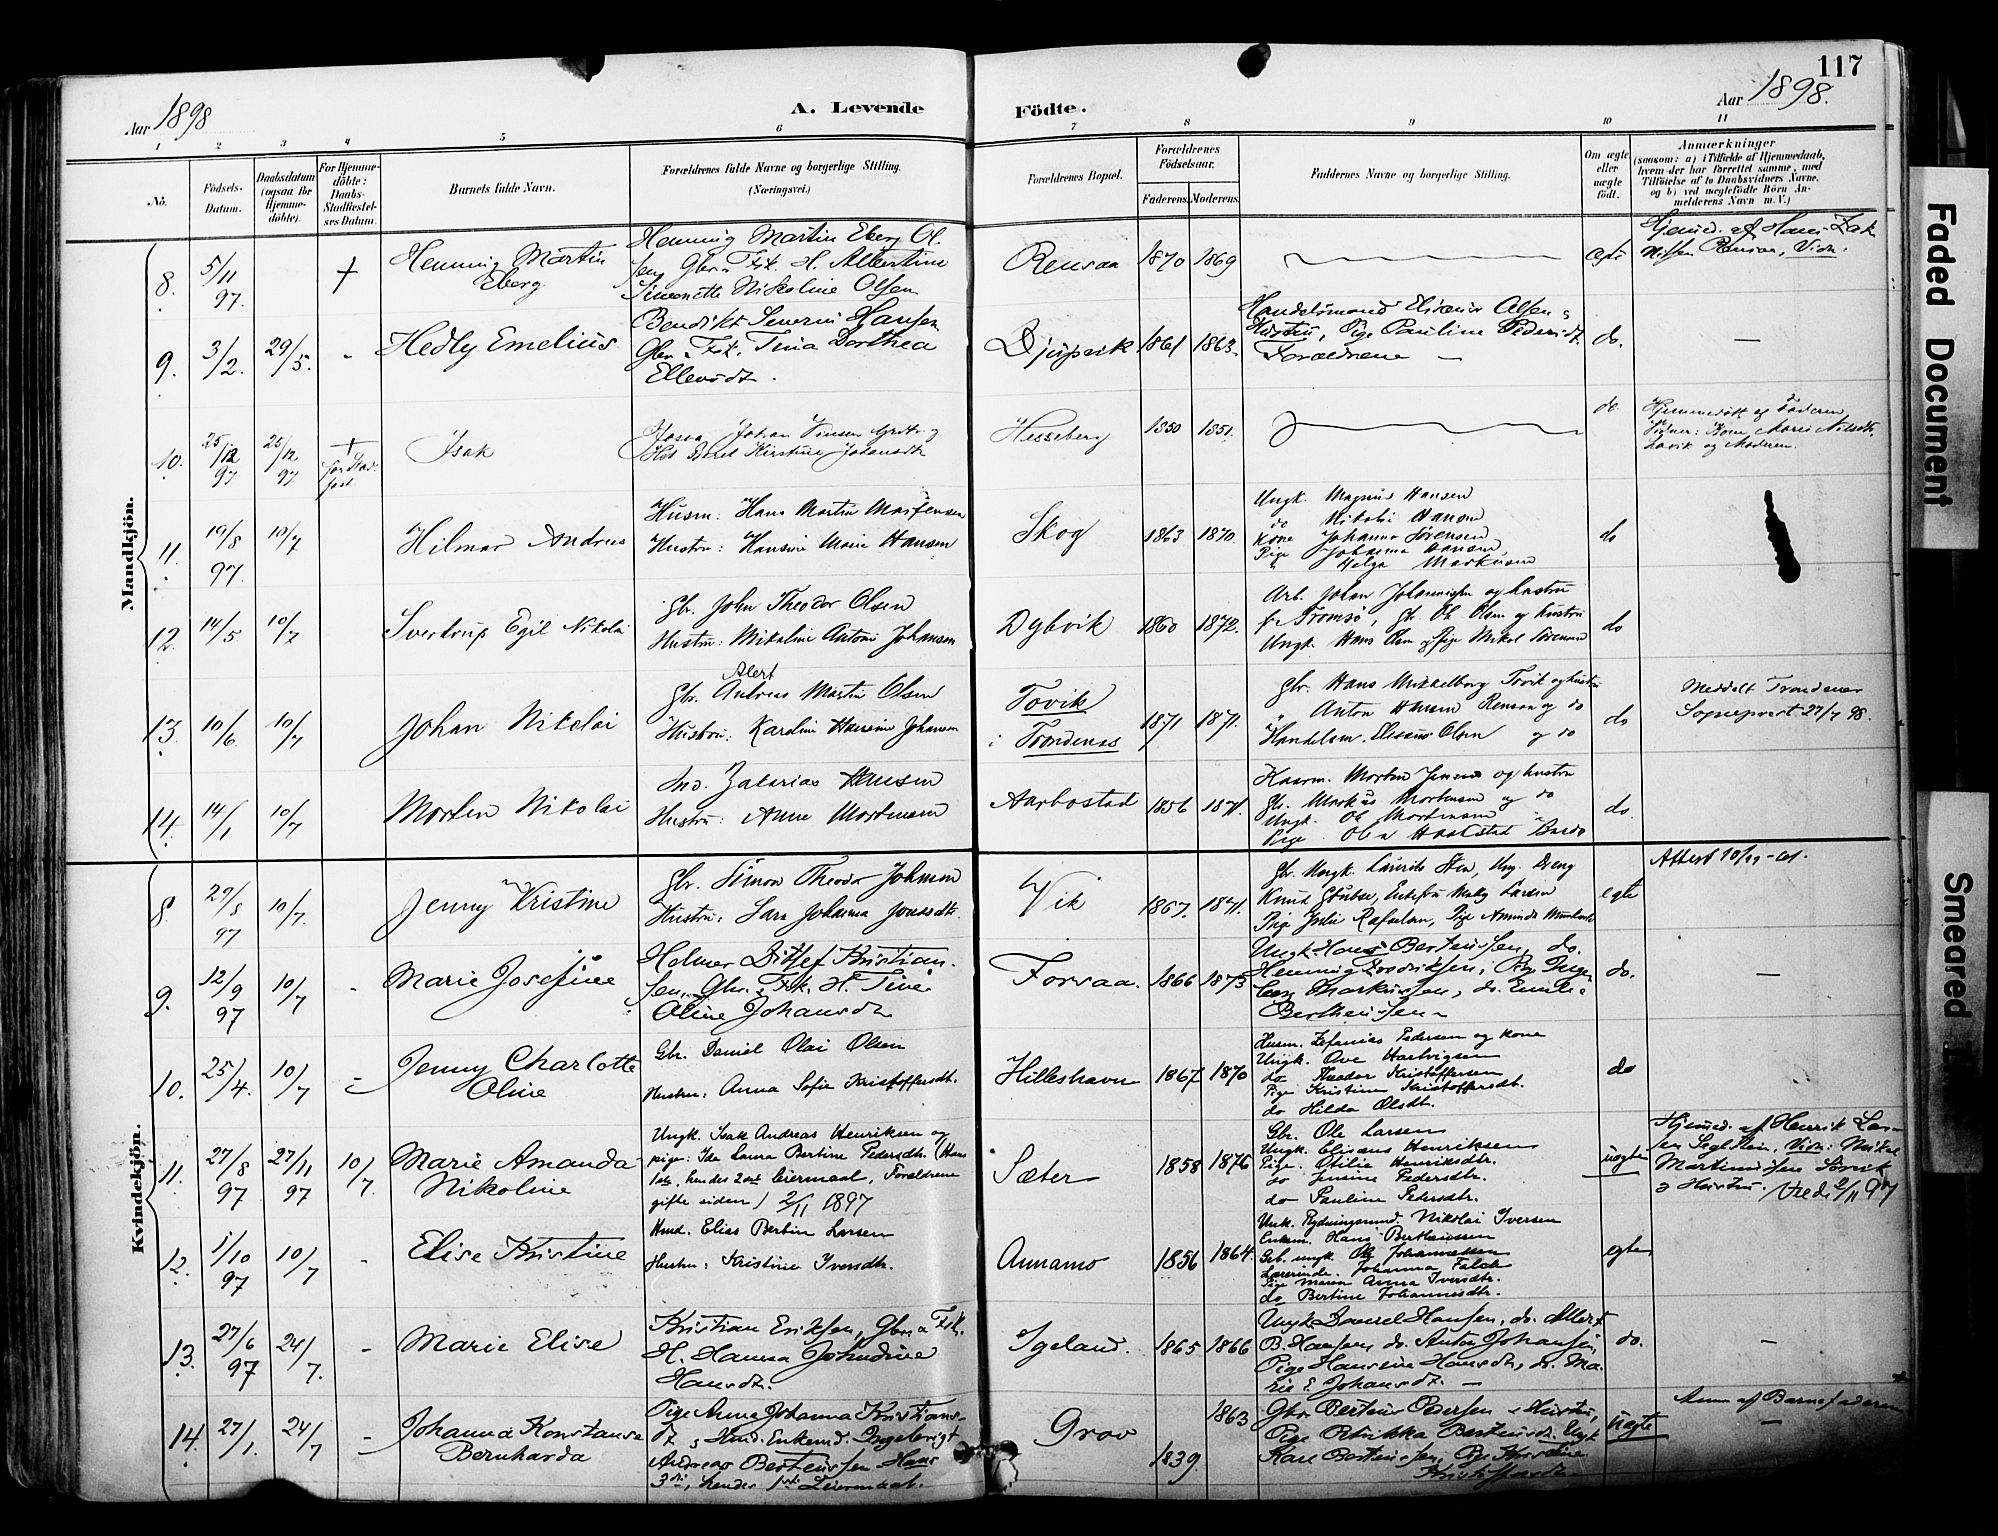 117
Aar 1898
A. Levende
Födte.
Aar 1898.
1 2 3 4 5 6 7 8 9 10 11
No.
Födsels-
Datum.
Daabsdatum
(ogsaa for
Hjemme-
döbte).
For Hjemme-
döbte:
Daabs-
Stadfæstel-
ses Datum.
Barnets fulde Navn.
Forældrenes fulde Navne og borgerlige Stilling.
(Næringsvei.)
Forældrenes Bopæl.
Forældrenes
Födselsaar.
Faderens. Moderens.
Faddernes Navne og borgerlige Stilling.
Om ægte
eller
uægte
født.
Anmærkninger
(saasom: a) i Tilfælde af Hjemmedaab,
hvem der har forrettet samme, med
Tilföielse af to Daabsvidners Navne,
og b) ved uægtefödte Börn An-
melderens Navn m. V.)
Mandkjön.
8. 5/11 97. + Henning Martin
Eberg
Henning Martin Eberg Ol
sen Gbr. Fsk. H. Albertine
Simonette Nikoline Olsen
Rensaa 1870 1869
Hjemd. af Hans Zak
Nilsen Rensaa, Vidn.
9. 3/2. 29/5. - Hedly Emelius
Bendikt Severin Hansen
Gbr. Fsk. Tina Dorthea
Ellevsdt.
Djupvik 1861 1863.
Handelsmand Elisæus Olsen
Hustru, Pige Pauline Pedersdt
Forældrene —
do. —
10. 25/12 97 25/12 97 +
Isak
Johan
Kirstine Johansdt
Hesseberg 1850 1851.
do
Hjemmedøbt af Faderen
Kone Marie Nilsdt,
Lavik og Moderen.
11. 19/8 97 10/7 Hilmar Andreas
Husm: Hans Martin Mortensen
Hustru: Hansine Marie Hansen
Skog 1863 1870.
Ungk. Magnus Hansen
do Nikolai Hansen
Kone Johanna Sørensen
Pige Johanna Hansen
" Helga Markusen
do
12. 14/5 10/7 Sverdrup Egil Nikolai
Gbr. John Theodor Olsen
Hustru: Nikoline Antoni Johansen
Dybvik 1860 1872.
Arb. Johan Johannesen og hustru
fr Tromsø, Gbr. Ole Olsen og hustru
Ungk. Hans Olsen og Pige Nikol. Sørensen
do
13. 10/6 10/7 Johan Nikolai
Alert
Gbr. Andreas Martin Olsen
Hustru: Karoline Hansine Johansen
Tovik
i Trondenes
1871 1871.
Gbr. Hans Mikkelborg Tovik og hustru
" Anton Hansen Rensaa og do
Handelsm. Elisæus Olsen og do
do
Meddelt Trondenes
Sogneprest 27/7 98.
14. 14/1 10/7 Morten Nikolai
Ind. Zakarias Hansen
Hustru: Anne Mortensen
Aarbostad 1856 1871.
Kaarm. Morten Jensen og hustru
Gbr. Markus Mortensen og do
Ungk. Ol Mortensen
Pige
do
Kvindekjön.
8. 27/8 97 10/7. Jenny Kristine
Gbr. Simon Theodor Johnsen
Hustru: Sara Johanna Jonasdt.
Vik 1867. 1871.
Gbr. Ungk. Laurits Sten, Ung. Dreng
Pige
egte
Attest 10/11-01.
9. 12/9 97 10/7 - Marie Josefine
Holmer Ditlef Kristian-
sen. Gbr. Fsk. H. Tine
Oline Johansdt
Forsaa. 1866 1873
Ungk. Hans Berteussen, do.
Henning Fredriksen, Pige Inge
borg Markussen, do. Emilie
Bertheussen
do. —
10. 25/4. 10/7 - Jenny Charlotte
Oline
Gbr. Daniel Olai Olsen
Hustru: Anna Sofie Kristoffersdt.
Hilleshavn 1867 1870
Husm. Zefanias Pedersen og kone
Ungk. Ove Hartvigsen
do Theodor Kristoffersen
Pige Kristine Kristoffersdt.
do Hilda Olsdt.
do
11. 27/8 97 27/11 97 10/7. Marie Amanda
Nikoline
Ungk. Isak Andreas Henriksen og
pige: Ida Laura Bertine Pedersdtr. (Hans
1ste, hendes 2det Leiermaal, Forældrene
gifte siden) 2/11 1897
Sæter 1858 1876
Gbr. Ole Larsen
Ungk. Elisæus Henriksen
Pige. Otilie Henriksdtr.
do Jensine Pedersdtr.
do Pauline Pedersdtr.
uægte
Hjemd. af Henrik Lar-
sen Seglsten, Vidn: Nikol
Martinussen Sørvik
og Hustru. Viede 2/11 97
12. 1/10 97 10/7 - Elise Kristine
Hmd. Elias Bertin Larsen
Hustru: Kristine Iversdtr.
Annamo 1856 1864.
Unk. Rydningsmd. Nikolai Iversen
Enkem. Hans Bertheussen
Gbr. ungk. Ole Johannessen
Lærerinde. Johanna Falck
Pige Maren Anna Iversdtr.
do Bertine Johannesdtr.
egte
13. 27/6 97 24/7. - Marie Elise
Kristian Eriksen, Gbr. Fsk.
H. Hanna Johndine
Hansdt.
Igeland. 1865 1866
Ungk. Daniel Hansen, do. Albert
B. Hansen, do. Anton Johansen
Pige Hansine Hansdt, do. Ma-
rie E Johansdt. —
do. —
14. 27/1. 24/7 - Johanna Konstanse
Bernharda
Pige Anna Johanna Kristians-
dt, Hmd. Enkemd. Ingebrigt
Andreas Berteussen Hans
3die, hendes 1ste Leiermaal.
Grov 1839. 1863
Gbr. Berteus Pedersen Hustru,
Pige Petrikka Berteusdt, Ungk
Karl Berteussen, Pige Kristine
Kristoffersdt.
uægte
Anm. af Barnefaderen
—
Faded Document
Smeared